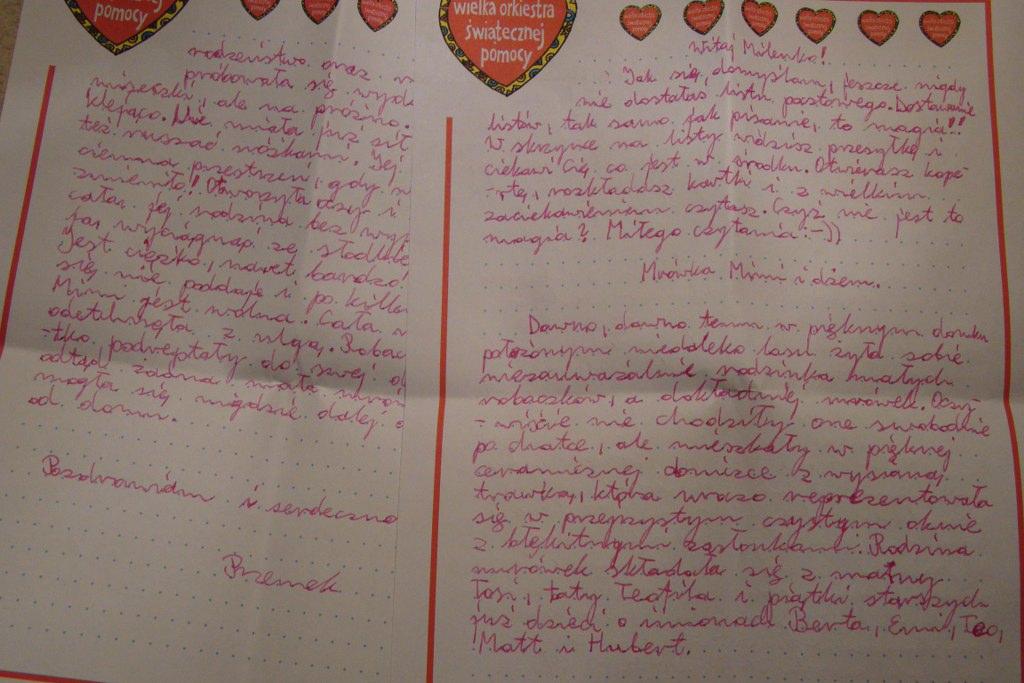 pomocy
rodzeństwo oraz w
próbowała się wyd
nóżeczki, ale na próżno.
klejąco. Nie miała już sił
też ruszać nóżkami. Jej
ciemna przestrzeń, gdy
zmieniło! Otworzyła oczy i
cała jej rodzina bez
wyciągnąć ze słodkie
Jest ciężko, nawet bardzo
się nie poddaje i po kilku
Mimi jest wolna. Cała
odetchnęła z ulgą. Robac
-tko podreptały do swej
odtąd żadna mała mrów
mogła się nigdzie dalej
od domu.
Pozdrawiam i serdeczno
Przemek
wielka orkiestra
świątecznej
pomocy
Witaj Milenka!
Jak się domyślam, jeszcze nigdy
nie dostałaś listu pocztowego. Dostawanie
listów, tak samo jak pisanie, to magia!!
W skrzynce na listy widzisz przesyłkę i
ciekawi Cię, co jest w środku. Otwierasz kope-
-rtę, rozkładasz kartki i z wielkim
zaciekawieniem czytasz. Czyż nie jest to
magia? Miłego czytania :-))
Mrówka Mimi i dżem.
Dawno, dawno temu w pięknym domku
położonym niedaleko lasu żyła sobie
niezauważalnie rodzinka małych
robaczków, a dokładniej mrówek. Oczy-
-wiście nie chodziły one swobodnie
po chatce, ale mieszkały w pięknej
ceramicznej doniczce z wysianą
trawką, która wraz reprezentowała
się w przejrzystym czystym oknie
z błękitnymi zasłonkami. Rodzina
mrówek składała się z mamy
Tosi, taty Teofila i piątki starszych
już dzieci o imionach Berta, Emi, Teo,
Matt i Hubert.